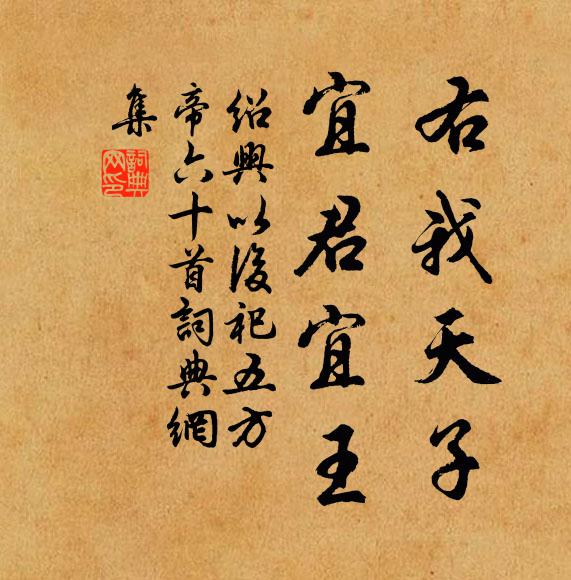 右我天子
宜君宜王
紹興以後祀五方
帝六十首詞典網
集
詞典
网印